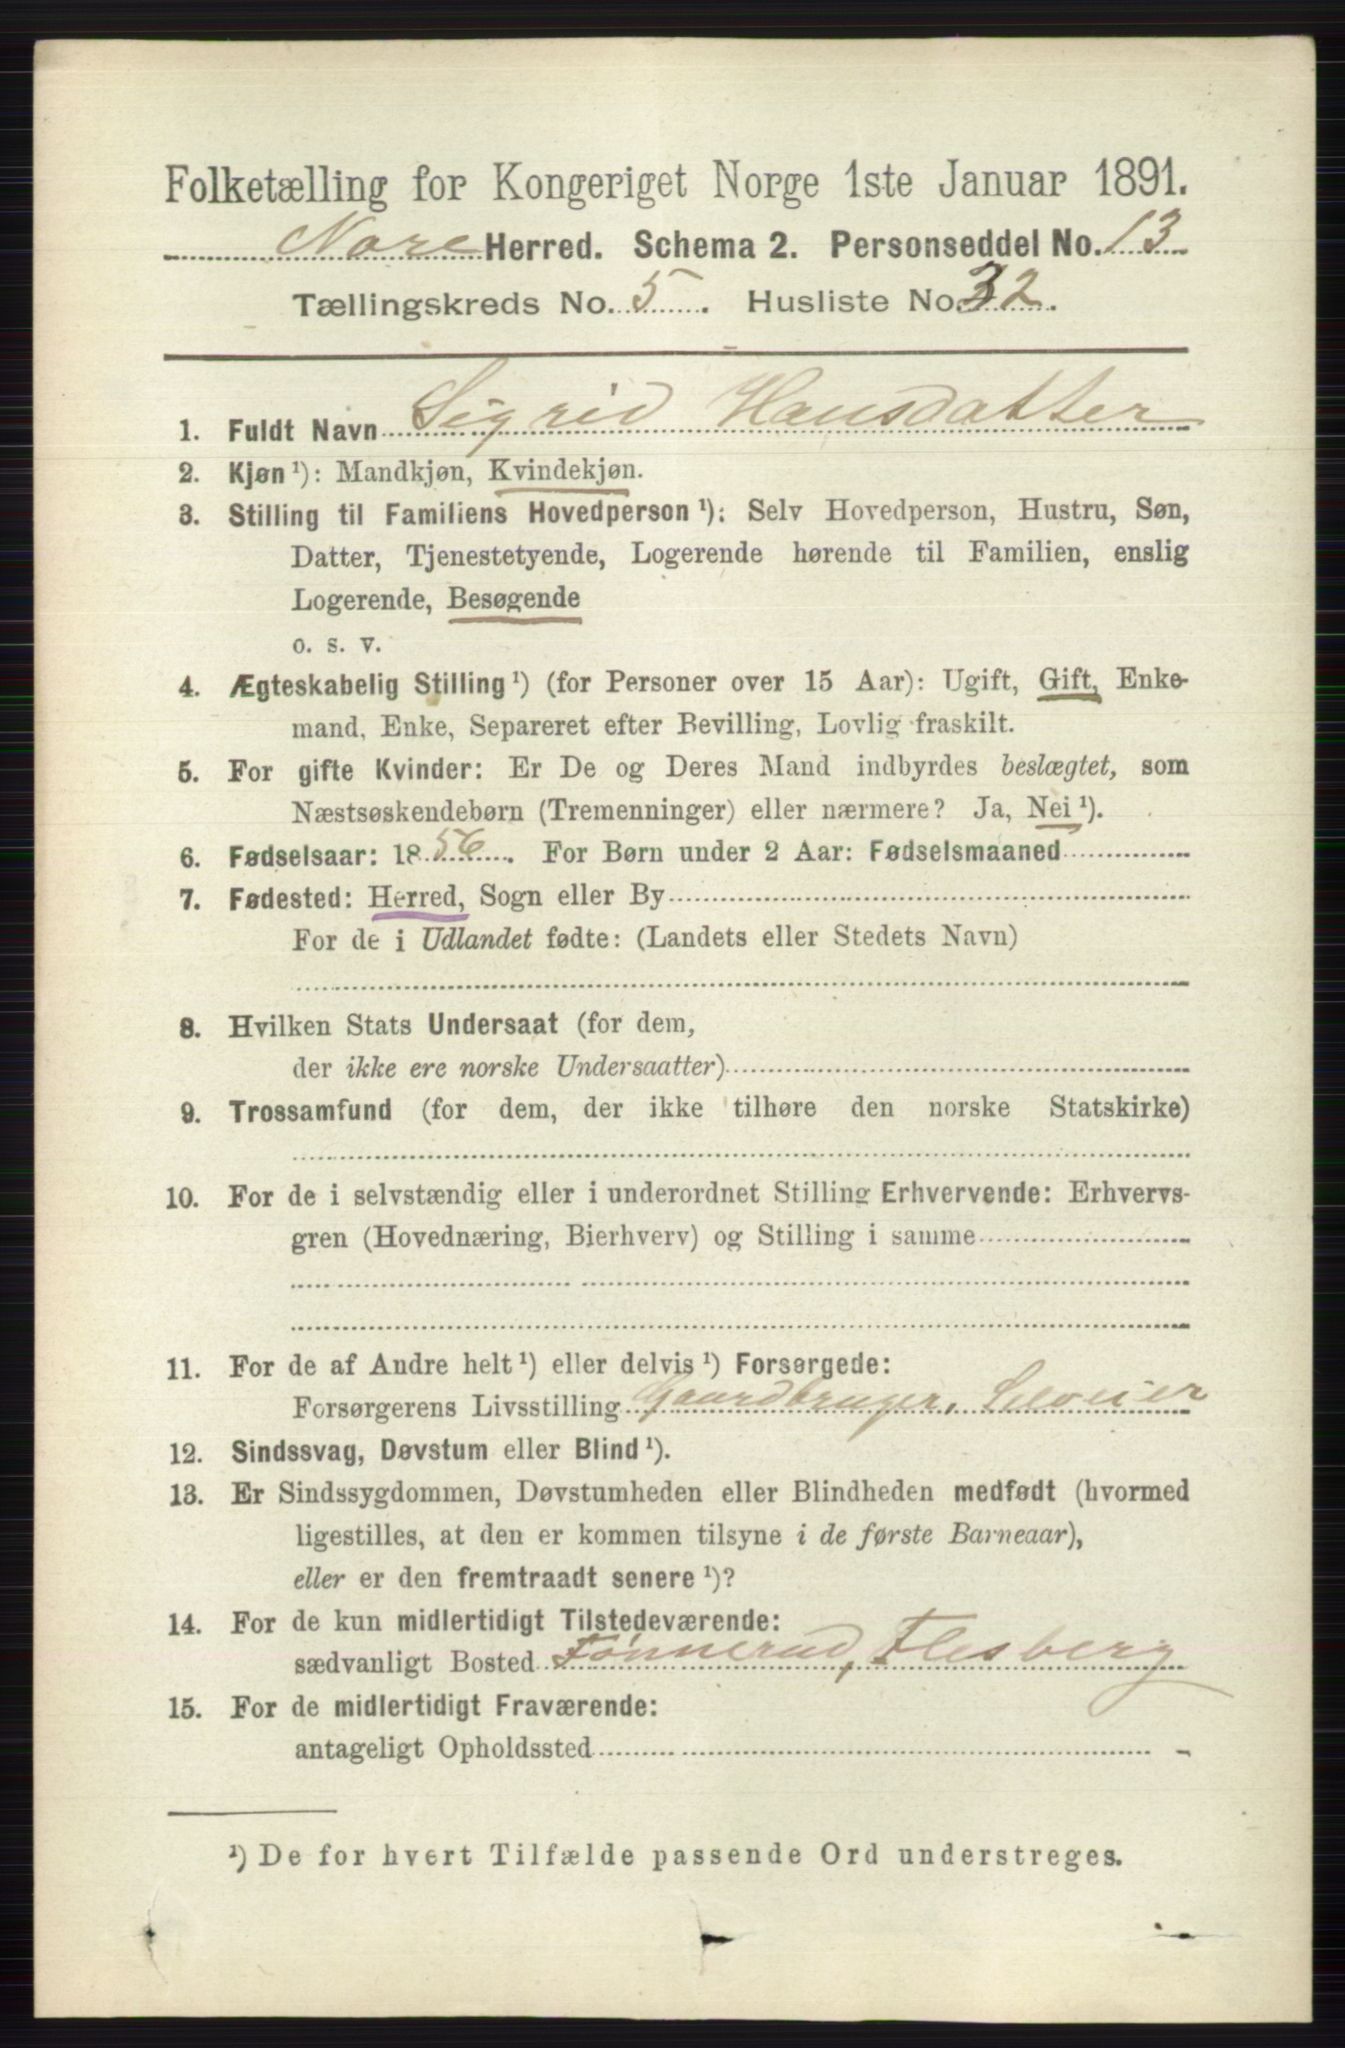 Folketælling for Kongeriget Norge 1ste Januar 1891.
Nore Herred. Schema 2. Personseddel No. 13
Tællingskreds No. 5. Husliste No. 32.
1. Fuldt Navn Sigrid Hansdatter
2. Kjøn ¹): Mandkjøn, Kvindekjøn.
3. Stilling til Familiens Hovedperson ¹): Selv Hovedperson, Hustru, Søn,
Datter, Tjenestetyende, Logerende hørende til Familien, enslig
Logerende, Besøgende
o. s. v.
4. Ægteskabelig Stilling ¹) (for Personer over 15 Aar): Ugift, Gift, Enke-
mand, Enke, Separeret efter Bevilling, Lovlig fraskilt.
5. For gifte Kvinder: Er De og Deres Mand indbyrdes beslægtet, som
Næstsøskendebørn (Tremenninger) eller nærmere? Ja, Nei ¹).
6. Fødselsaar: 1856. For Børn under 2 Aar: Fødselsmaaned
7. Fødested: Herred, Sogn eller By
For de i Udlandet fødte: (Landets eller Stedets Navn)
8. Hvilken Stats Undersaat (for dem,
der ikke ere norske Undersaatter)
9. Trossamfund (for dem, der ikke tilhøre den norske Statskirke)
10. For de i selvstændig eller i underordnet Stilling Erhvervende: Erhvervs-
gren (Hovednæring, Bierhverv) og Stilling i samme
11. For de af Andre helt ¹) eller delvis ¹) Forsørgede:
Forsørgerens Livsstilling Gaardbruger, Selveier
12. Sindssvag, Døvstum eller Blind ¹).
13. Er Sindssygdommen, Døvstumheden eller Blindheden medfødt (hvormed
ligestilles, at den er kommen tilsyne i de første Barneaar),
eller er den fremtraadt senere ¹)?
14. For de kun midlertidigt Tilstedeværende:
sædvanligt Bosted Tønnerud, Flesberg
15. For de midlertidigt Fraværende:
antageligt Opholdssted
¹) De for hvert Tilfælde passende Ord understreges.